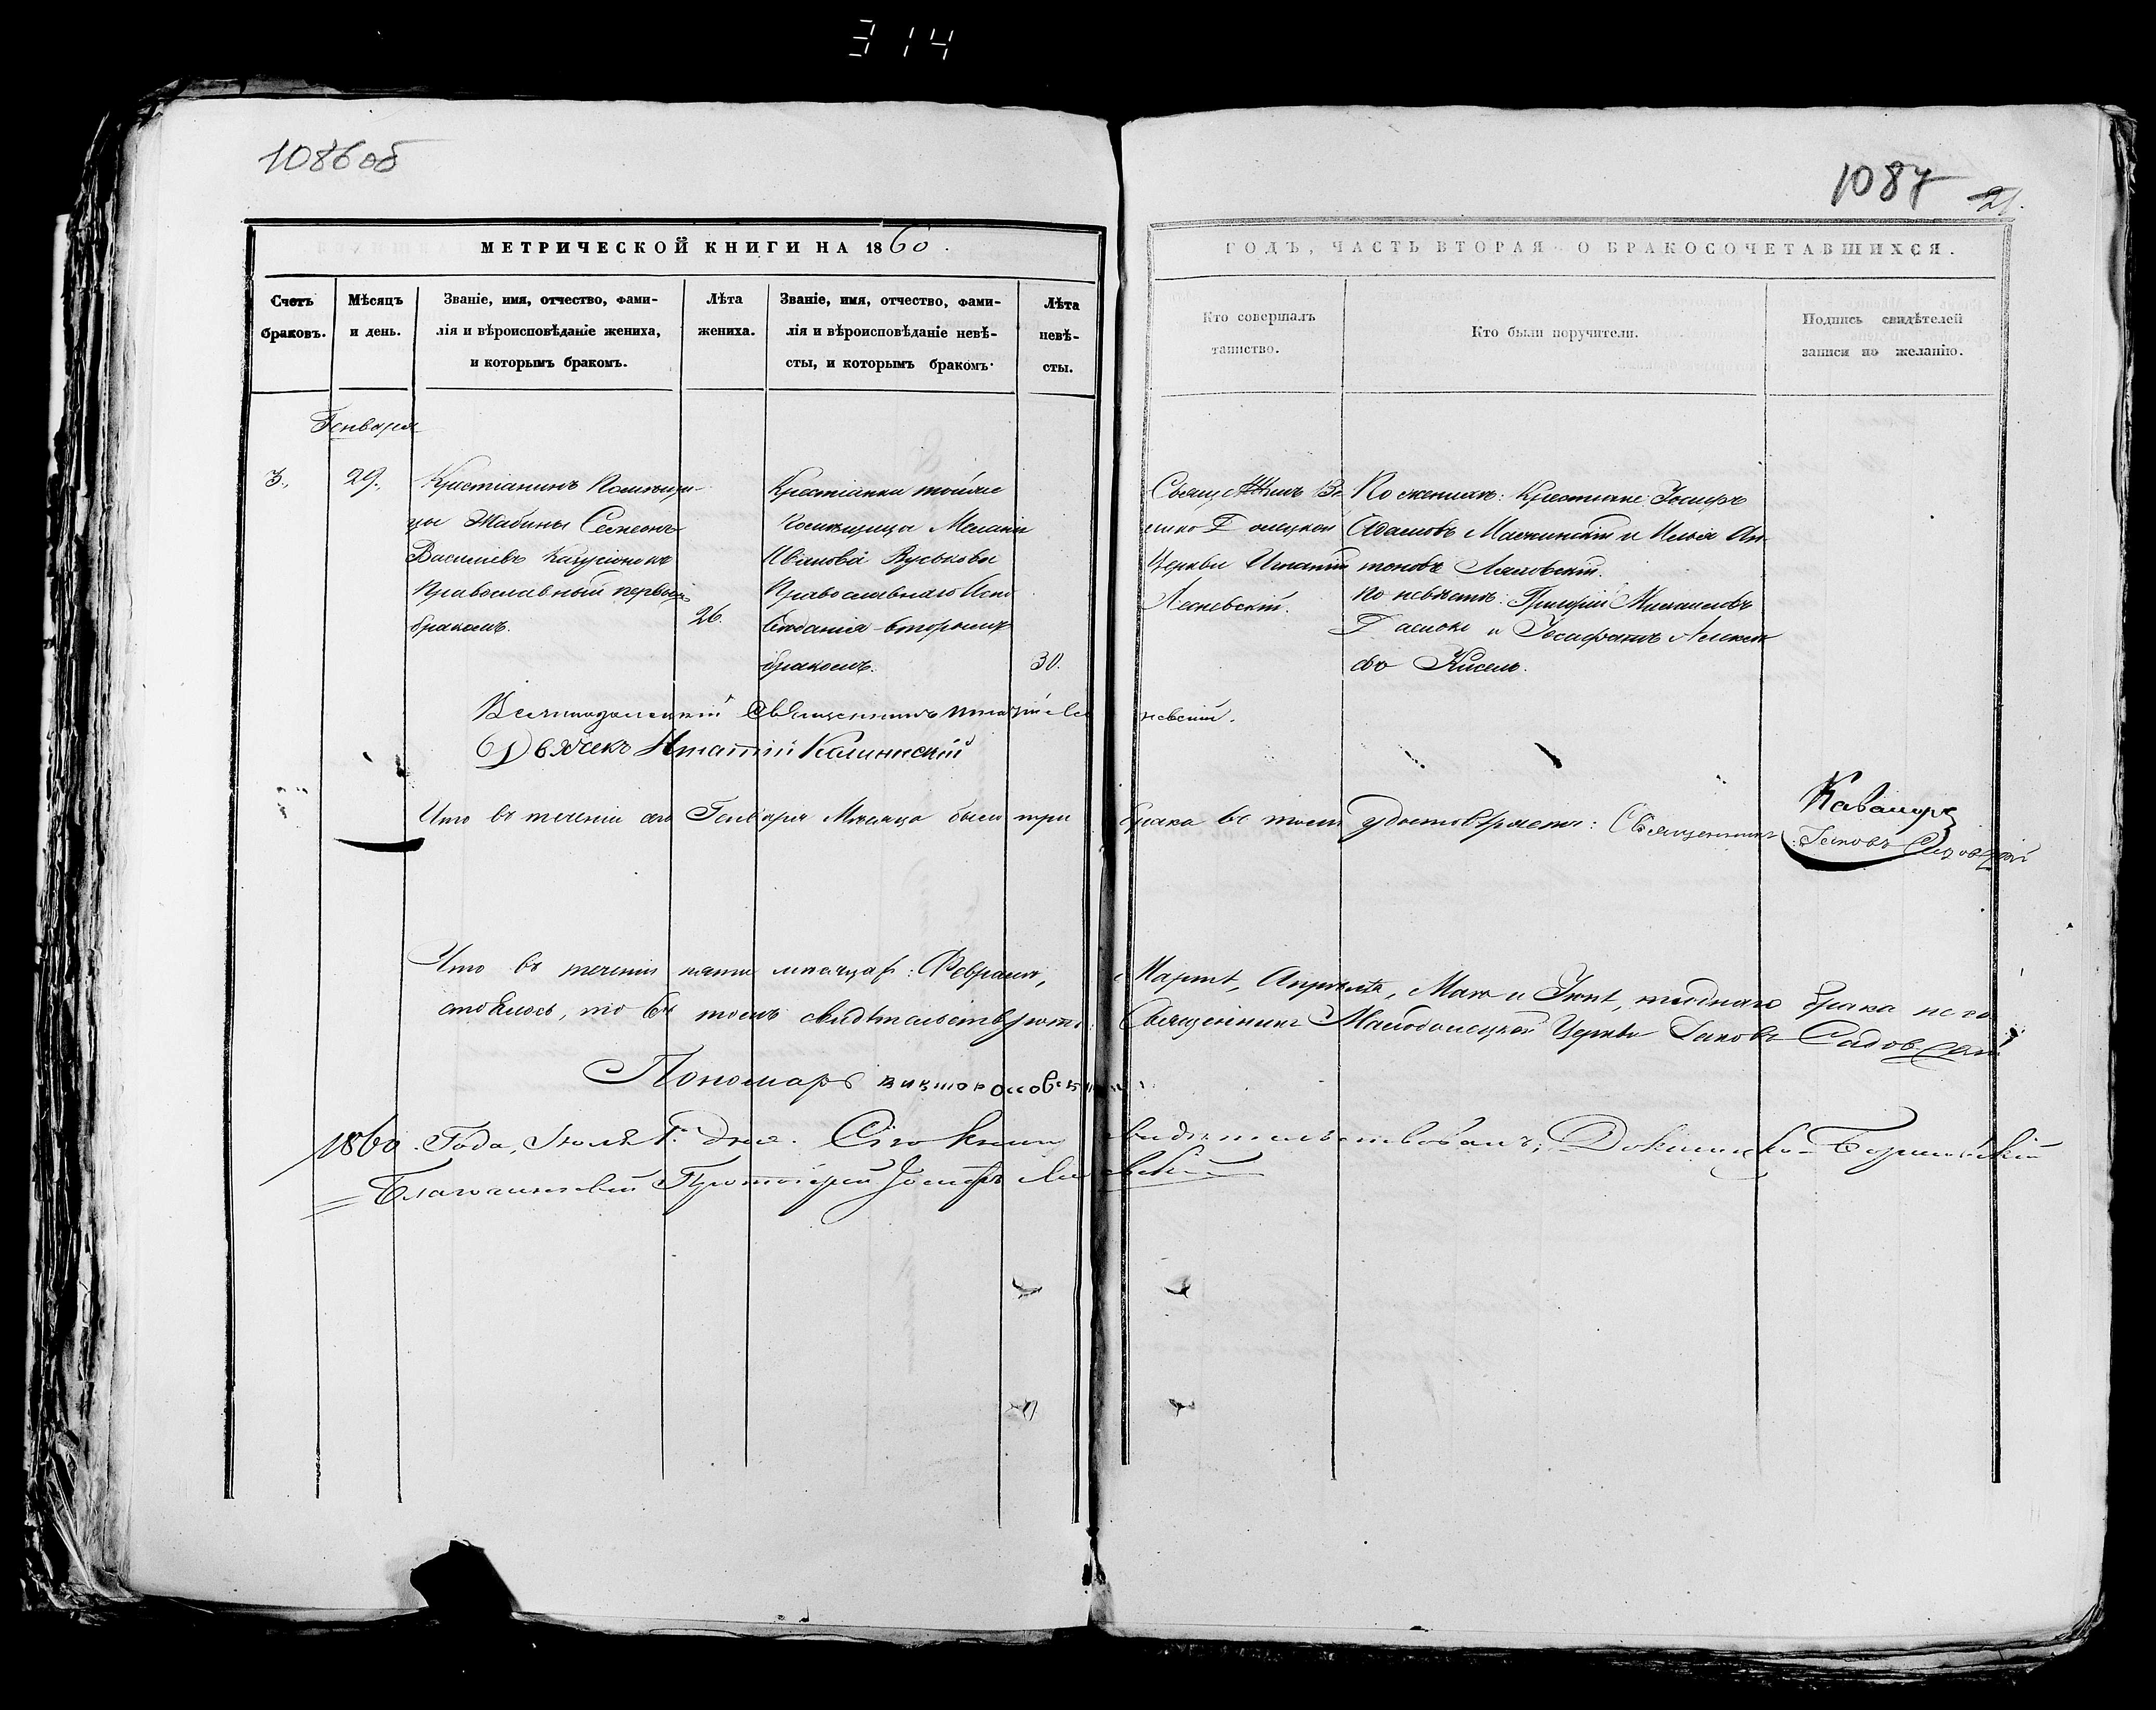 314
1086 об
1087
21.
МЕТРИЧЕСКОЙ КНИГИ НА 1860.
ГОДЪ, ЧАСТЬ ВТОРАЯ О БРАКОСОЧЕТАВШИХСЯ.
Счетъ браковъ.
Мѣсяцъ и день.
Званіе, имя, отчество, фами-
лія и вѣроисповѣданіе жениха,
и которымъ бракомъ.
Лѣта жениха.
Званіе, имя, отчество, фами-
лія и вѣроисповѣданіе невѣ-
сты, и которымъ бракомъ.
Лѣта невѣ-
сты.
Кто совершалъ
таинство.
Кто были поручители.
Подпись свидѣтелей
записи по желанію.
Генваря
3.
29.
Крестіанинъ Помѣщи-
цы Жабины Семеонъ
Василіевъ
Православный первымъ
бракомъ.
26.
Крестіанка тойже
помѣщицы Меланія
Иванова
Православнаго Испо
вѣданія вторымъ
бракомъ.
30.
Священникъ Ве
лико Долецкой
Церкви Игнатій
Лесневскій.
По женихѣ: Крестіане: Іосифъ
Адамовъ и Илья Ан
тоновъ
По невѣстѣ: Григорій Михаиловъ
и Іосифатъ Алексѣ
евъ Кисель.
Великодолецкій Священникъ Игнатій Лес
невскій.
Дьячекъ Игнатій Калинскій
Что въ теченіи сего Генваря Мѣсяца было три
брака въ томъ удостовѣряетъ: Священникъ
Іаковъ Садовскій
Что въ теченіи пяти мѣсяцаъ: Февралѣ,
Мартѣ, Апрѣлѣ, Маѣ и Іюнѣ, ниоднаго брака не со
стоялось, то въ томъ свидѣтельствуютъ:
Священникъ Малодолецкой Церкви Іаковъ Садовскій
Пономарь
1860. Года, Іюля 1. дня. Сію книгу
свидѣтельствовалъ, Докшицко-
Благочинный Протоіерей Іосифъ